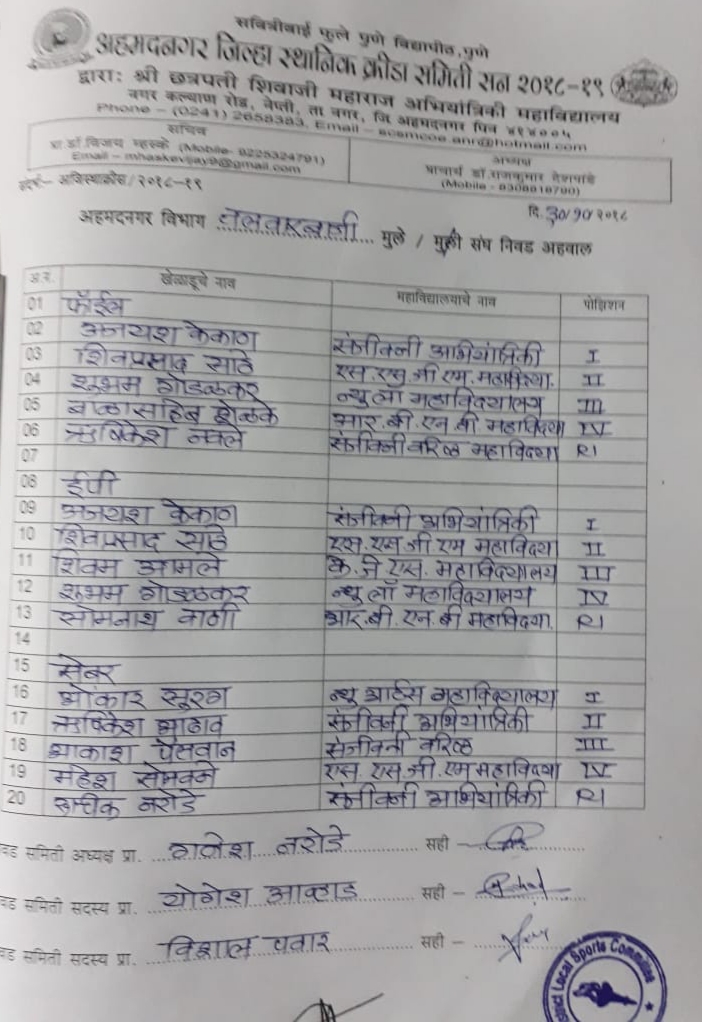 सावित्रीबाई फुले पुणे विद्यापीठ, पुणे
अहमदनगर जिल्हा स्थानिक क्रीडा समिती सन २०१८-१९
द्वारा: श्री छत्रपती शिवाजी महाराज अभियांत्रिकी महाविद्यालय
नगर कल्याण रोड, नेप्ती, ता नगर, जि अहमदनगर पिन ४१४००५
Phone - (0241) 2658383, Email - scsmcoe.anr@hotmail.com
सचिव
प्रा.डॉ.विजय म्हस्के (Mobile- 9225324791)
Email - mhaskevijay9@gmail.com
अध्यक्ष
प्राचार्य डॉ.राजकुमार देशपांडे
(Mobile - 9308818790)
संदर्भ- अजिस्थाक्रीस/२०१८-१९
दि. 30/10 २०१८
अहमदनगर विभाग तलवारबाजी मुले / मुली संघ निवड अहवाल
अ.नं. खेळाडूचे नाव महाविद्यालयाचे नाव पोझिशन
01 फॉईल
02 अजयश केकाण संजीवनी अभियांत्रिकी I
03 शिवप्रसाद साठे एस.एस.जी.एम.महाविद्या. II
04 शुभम गोडळकर न्यु लॉ महाविद्यालय III
05 बाळासाहेब शेळके आर.बी.एन.बी महाविद्या IV
06 ऋषिकेश नवले संजीवनी वरिष्ठ महाविद्या R1
07
08 ईपी
09 अजयश केकाण संजीवनी अभियांत्रिकी I
10 शिवप्रसाद साठे एस.एस जी एम महाविद्या II
11 शिवम आमले के.जे.एस. महाविद्यालय III
12 शुभम गोडळकर न्यु लॉ महाविद्यालय IV
13 सोमनाथ वाणी आर.बी.एन.बी महाविद्या. R1
14
15 सेबर
16 ओंकार सुरग न्यु आर्टस महाविद्यालय I
17 ऋषिकेश आढाव संजीवनी अभियांत्रिकी II
18 आकाश पेसवान संजीवनी वरिष्ठ III
19 महेश सोनवने एस.एस.जी.एम महाविद्या IV
20 नरोडे संजीवनी अभियांत्रिकी R1
वड समिती अध्यक्ष प्रा. गणेश नरोडे सही -
वड समिती सदस्य प्रा. योगेश आव्हाड सही -
वड समिती सदस्य प्रा. विशाल पवार सही -
Local Sports Committee